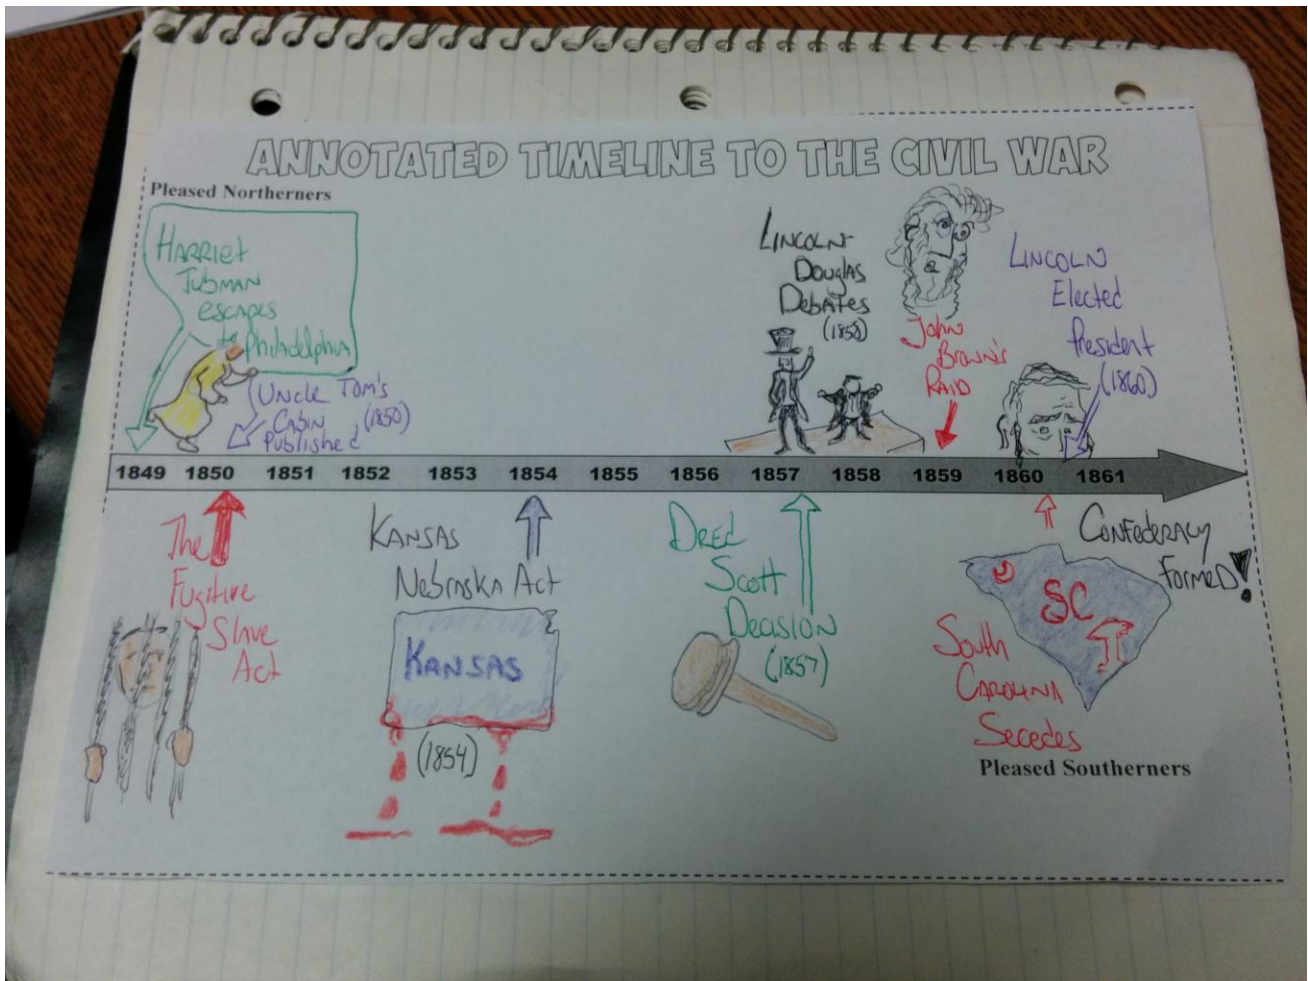 ANNOTATED TIMELINE TO THE CIVIL WAR
Pleased Northerners
HARRIET
TUBMAN
escapes
to
Philadelphia
UNCLE TOM'S
CABIN (1850)
Published
LINCOLN-
DOUGLAS
DEBATES
(1858)
John
BROWN'S
RAID
LINCOLN
Elected
President
(1860)
1849 1850 1851 1852 1853 1854 1855 1856 1857 1858 1859 1860 1861
The
Fugitive
Slave
Act
KANSAS
Nebraska Act
KANSAS
(1854)
DRED
Scott
Decision
(1857)
SC
South
CAROLINA
Secedes
CONFEDERACY
FORMED!
Pleased Southerners